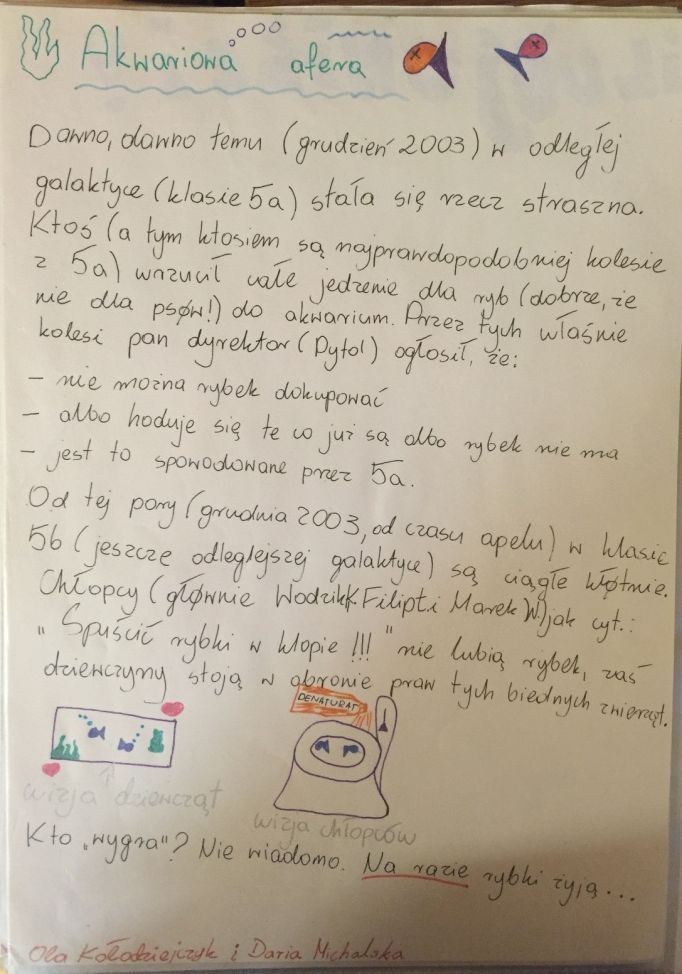 Akwariowa afera
Dawno, dawno temu (grudzień 2003) w odległej
galaktyce (klasie 5a) stała się rzecz straszna.
Ktoś (a tym ktosiem są najprawdopodobniej kolesie
z 5a) wrzucił całe jedzenie dla ryb (dobrze, że
nie dla psów!) do akwarium. Przez tych właśnie
kolesi pan dyrektor (Dytol) ogłosił, że:
- nie można rybek dokupować
- albo hoduje się te co już są albo rybek nie ma
- jest to spowodowane przez 5a.
Od tej pory (grudnia 2003, od czasu apelu) w klasie
5b (jeszcze odleglejszej galaktyce) są ciągłe kłótnie.
Chłopcy (głównie Wodzik K. Filip i Marek W.) jak cyt.:
"Spuścić rybki w klopie !!!" nie lubią rybek, zaś
dziewczyny stoją w obronie praw tych biednych zwierząt.
DENATURAT
wizja dziewcząt
wizja chłopców
Kto "wygra"? Nie wiadomo. Na razie rybki żyją...
Ola Kołodziejczyk i Daria Michalska